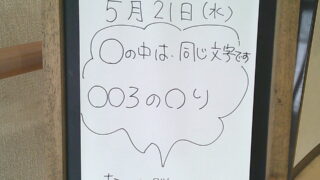 5月21日(水)
○の中は、同じ文字です
○○ろの○り